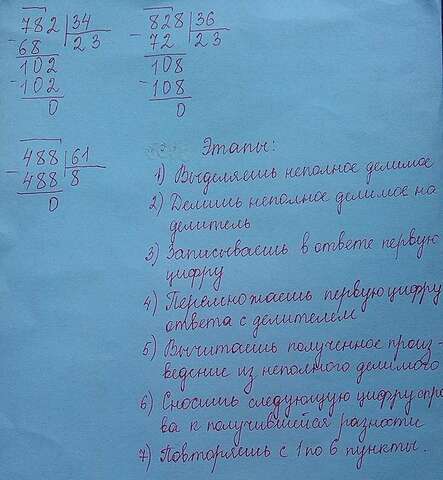 782 34
68 23
102
102
0
828 36
72 23
108
108
0
488 61
488 8
0
Этапы:
1) Выделяешь неполное делимое
2) Делишь неполное делимое на
делитель
3) Записываешь в ответе первую
цифру
4) Перемножаешь первую цифру
ответа с делителем
5) Вычитаешь полученное произ-
ведение из неполного делимого
6) Сносишь следующую цифру спра
ва к получившейся разности
7) Повторяешь с 1 по 6 пункты.